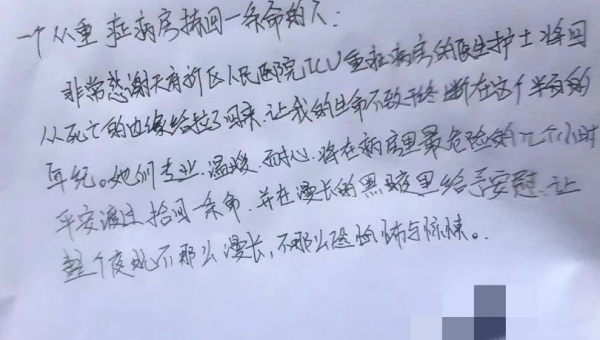 一个从重症病房捡回一条命的人：
非常感谢天府新区人民医院ICU重症病房的医生护士将回
从死亡的边缘给拉了回来，让我的生命不致于终断在这个半百的
年纪。她们专业、温暖、耐心，将在病房里最危险的九个小时
平安渡过拾回一条命，并在漫长的黑暗里给予安慰，让
整个夜晚不那么漫长，不那么恐怖与惊悚。